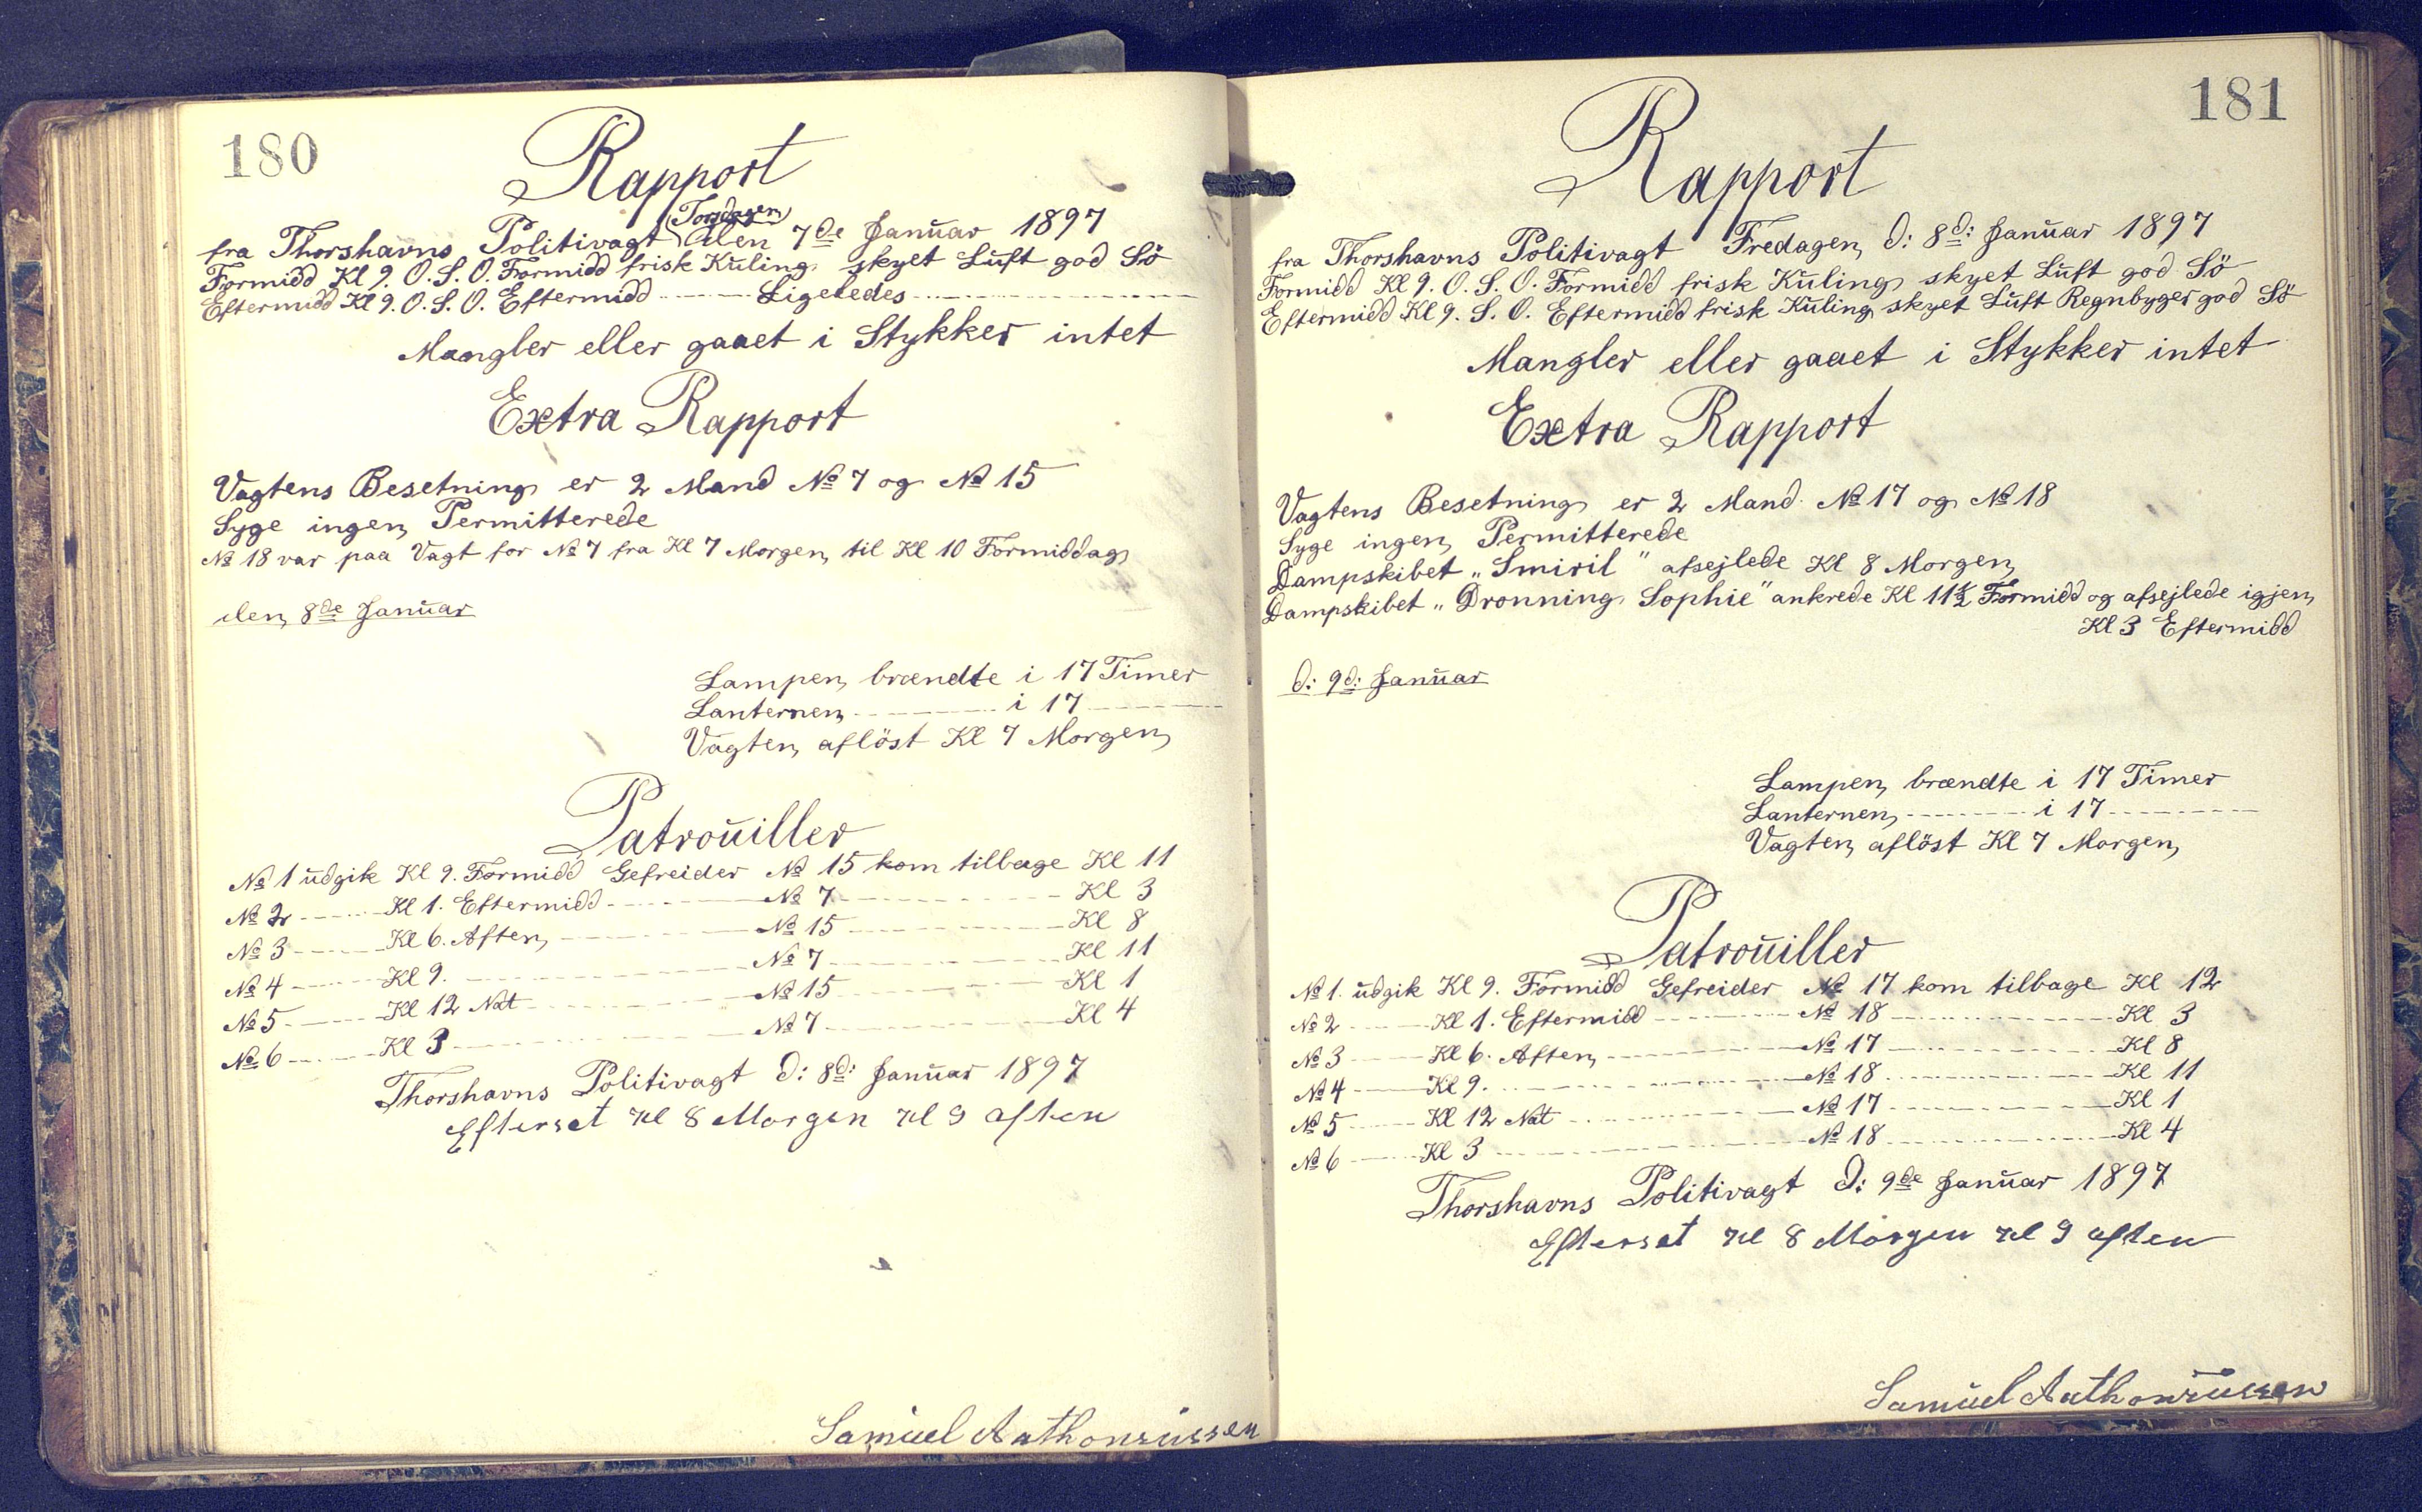 180
Rapport
(Torsdagen)
fra Thorshavns Politivagt den 7de Januar 1897
Formidd Kl 9. O. S. O. Formidd frisk Kuling skyet Luft god Sö
Eftermidd Kl 9. O. S. O. Eftermidd ------ Ligeledes ------
Mangler eller gaaet i Stykker intet
Extra Rapport
Vagtens Besetning er 2 Mand No 7 og No 15
Syge ingen Permitterede
No 18 var paa Vagt for No 7 fra Kl 7 Morgen til Kl 10 Formiddag
den 8de Januar
Lampen brændte i 17 Timer
Lanternen ------ i 17 ------
Vagten aflöst Kl 7 Morgen
Patrouiller
No 1 udgik Kl 9. Formidd Gefreider No 15 kom tilbage Kl 11
No 2 ------ Kl 1. Eftermidd ------ No 7 ------ Kl 3
No 3 ------ Kl 6. Aften ------ No 15 ------ Kl 8
No 4 ------ Kl 9. ------ No 7 ------ Kl 11
No 5 ------ Kl 12 Nat ------ No 15 ------ Kl 1
No 6 ------ Kl 3 ------ No 7 ------ Kl 4
Thorshavns Politivagt d: 8d: Januar 1897
Efterset Kl 8 Morgen Kl 9 aften
Samuel Anthoniussen
181
Rapport
fra Thorshavns Politivagt Fredagen d: 8d: Januar 1897
Formidd Kl 9. O. S. O. Formidd frisk Kuling skyet Luft god Sö
Eftermidd Kl 9. S. O. Eftermidd frisk Kuling skyet Luft Regnbyger god Sö
Mangler eller gaaet i Stykker intet
Extra Rapport
Vagtens Besetning er 2 Mand No 17 og No 18
Syge ingen Permitterede
Dampskibet „Smiril" afsejlede Kl 8 Morgen
Dampskibet „Dronning Sophie" ankrede Kl 11½ Formidd og afsejlede igjen
Kl 3 Eftermidd
d: 9d: Januar
Lampen brændte i 17 Timer
Lanternen ------ i 17 ------
Vagten aflöst Kl 7 Morgen
Patrouiller
No 1. udgik Kl 9. Formidd Gefreider No 17 kom tilbage Kl 12
No 2 ------ Kl 1. Eftermidd ------ No 18 ------ Kl 3
No 3 ------ Kl 6. Aften ------ No 17 ------ Kl 8
No 4 ------ Kl 9. ------ No 18 ------ Kl 11
No 5 ------ Kl 12 Nat ------ No 17 ------ Kl 1
No 6 ------ Kl 3 ------ No 18 ------ Kl 4
Thorshavns Politivagt d: 9de Januar 1897
Efterset Kl 8 Morgen Kl 9 aften
Samuel Anthoniussen